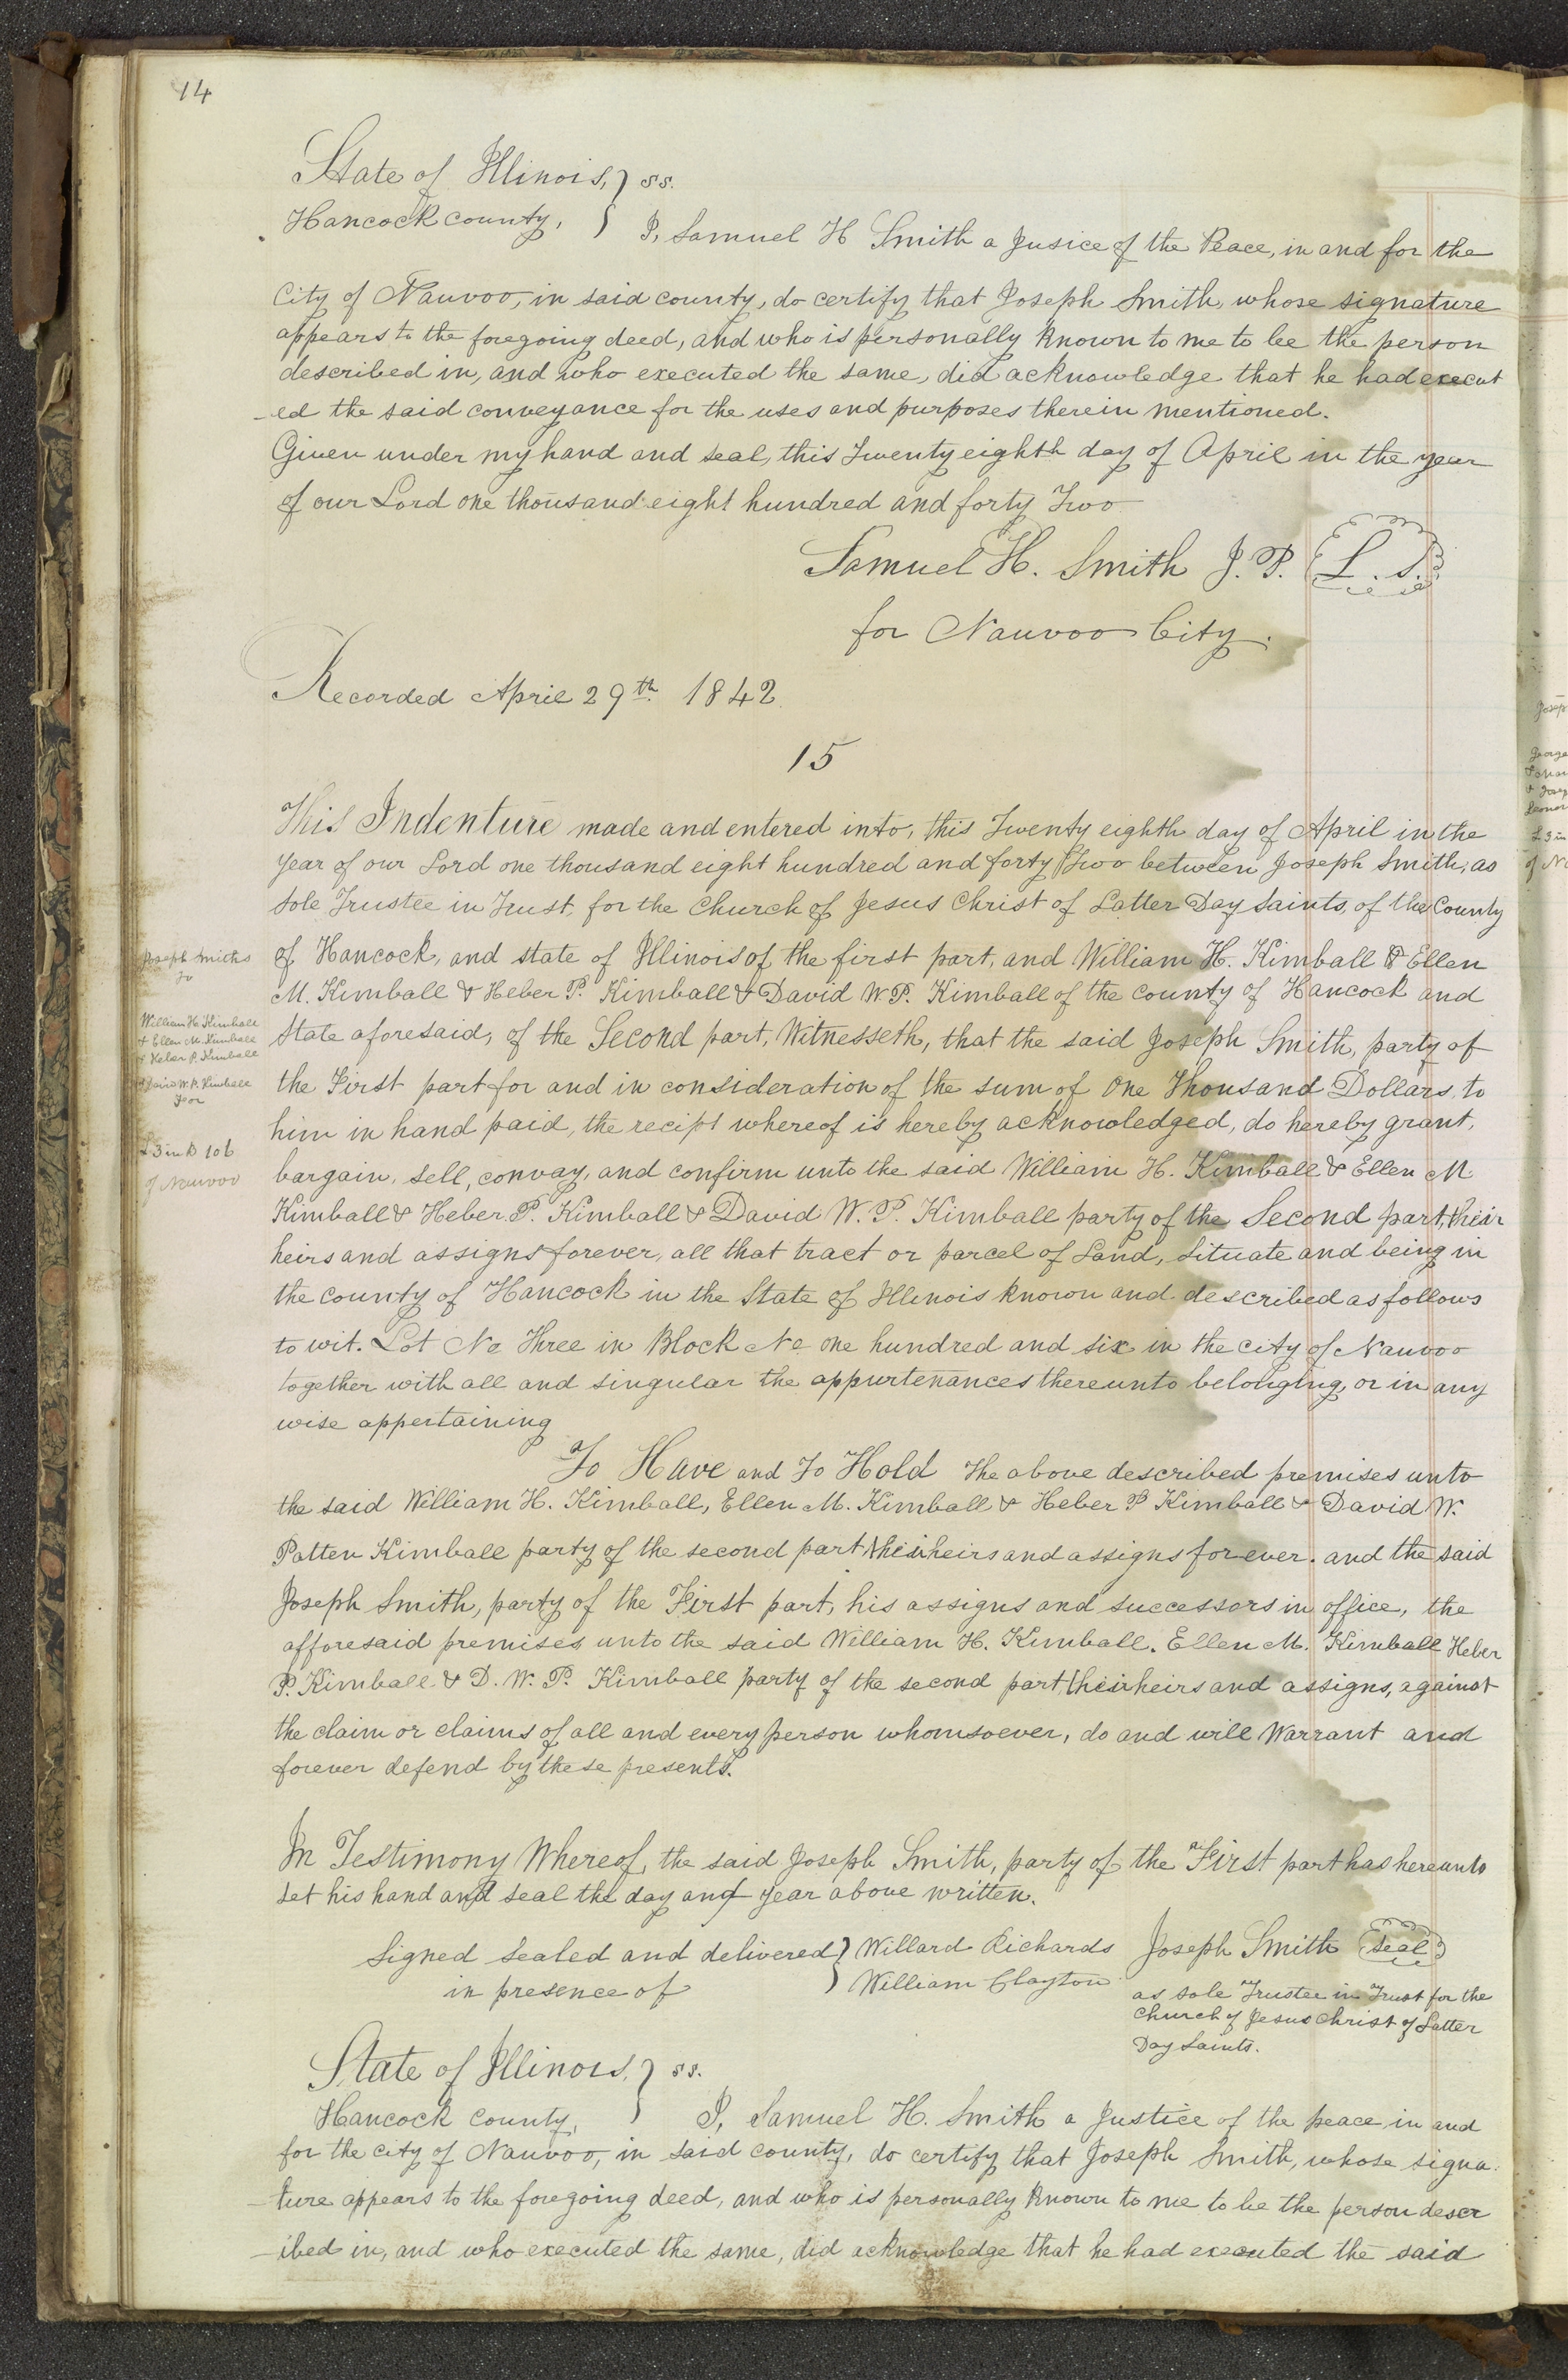 14
State of Illinois, } ss.
Hancock county, } I, Samuel H Smith a Jusice of the Peace, in and for the
City of Nauvoo, in said county, do certify that Joseph Smith, whose signature
appears to the foregoing deed, and who is personally known to me to be the person
described in, and who executed the same, did acknowledge that he had execut
-ed the said conveyance for the uses and purposes therein mentioned.
Given under my hand and seal, this Twenty eighth day of April in the year
of our Lord one thousand eight hundred and forty Two
Samuel H. Smith J. P. L. S.
for Nauvoo City.
Recorded April 29th 1842
15
This Indenture made and entered into, this Twenty eighth day of April in the
year of our Lord one thousand eight hundred and forty Two between Joseph Smith, as
sole Trustee in Trust, for the Church of Jesus Christ of Latter Day Saints, of the County
of Hancock, and state of Illinois of the first part, and William H. Kimball & Ellen
M. Kimball & Heber P. Kimball & David W. P. Kimball of the county of Hancock and
State aforesaid, of the Second part, Witnesseth, that the said Joseph Smith, party of
the First part for and in consideration of the sum of One Thousand Dollars to
him in hand paid, the recipt whereof is hereby acknowledged, do hereby grant,
bargain, sell, convay, and confirm unto the said William H. Kimball & Ellen M.
Kimball & Heber P. Kimball & David W. P. Kimball party of the Second part, their
heirs and assigns forever, all that tract or parcel of Land, Situate and being in
the county of Hancock in the State of Illinois known and described as follows
to wit. Lot No Three in Block No one hundred and six in the city of Nauvoo
together with all and singular the appurtenances thereunto belonging, or in any
wise appertaining
To Have and To Hold The above described premises unto
the said William H. Kimball, Ellen M. Kimball & Heber P Kimball & David W.
Patten Kimball party of the second part, their heirs and assigns for ever. and the said
Joseph Smith, party of the First part, his assigns and successors in office, the
afforesaid premises unto the said William H. Kimball. Ellen M. Kimball Heber
P. Kimball & D. W. P. Kimball party of the second part, their heirs and assigns, against
the claim or claims of all and every person whomsoever, do and will Warrant and
forever defend by these presents.
In Testimony Whereof, the said Joseph Smith, party of the First part has hereunto
set his hand and seal the day and year above written.
Signed sealed and delivered } Willard Richards Joseph Smith seal
in presence of } William Clayton
as sole Trustee in Trust for the
Church of Jesus Christ of Latter
Day Saints.
State of Illinois, } ss.
Hancock county, } I, Samuel H. Smith a Justice of the peace, in and
for the city of Nauvoo, in said county, do certify that Joseph Smith, whose signa-
-ture appears to the foregoing deed, and who is personally known to me to be the person descr
-ibed in, and who executed the same, did acknowledge that he had executed the said
Joseph Smiths
To
William H. Kimball
& Ellen M. Kimball
& Heber P. Kimball
& David W. P. Kimball
For
L 3 in B 106
of Nauvoo